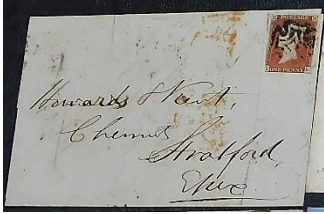 POSTAGE
ONE PENNY
Howards & Kent,
Chemists
Stratford,
Essex